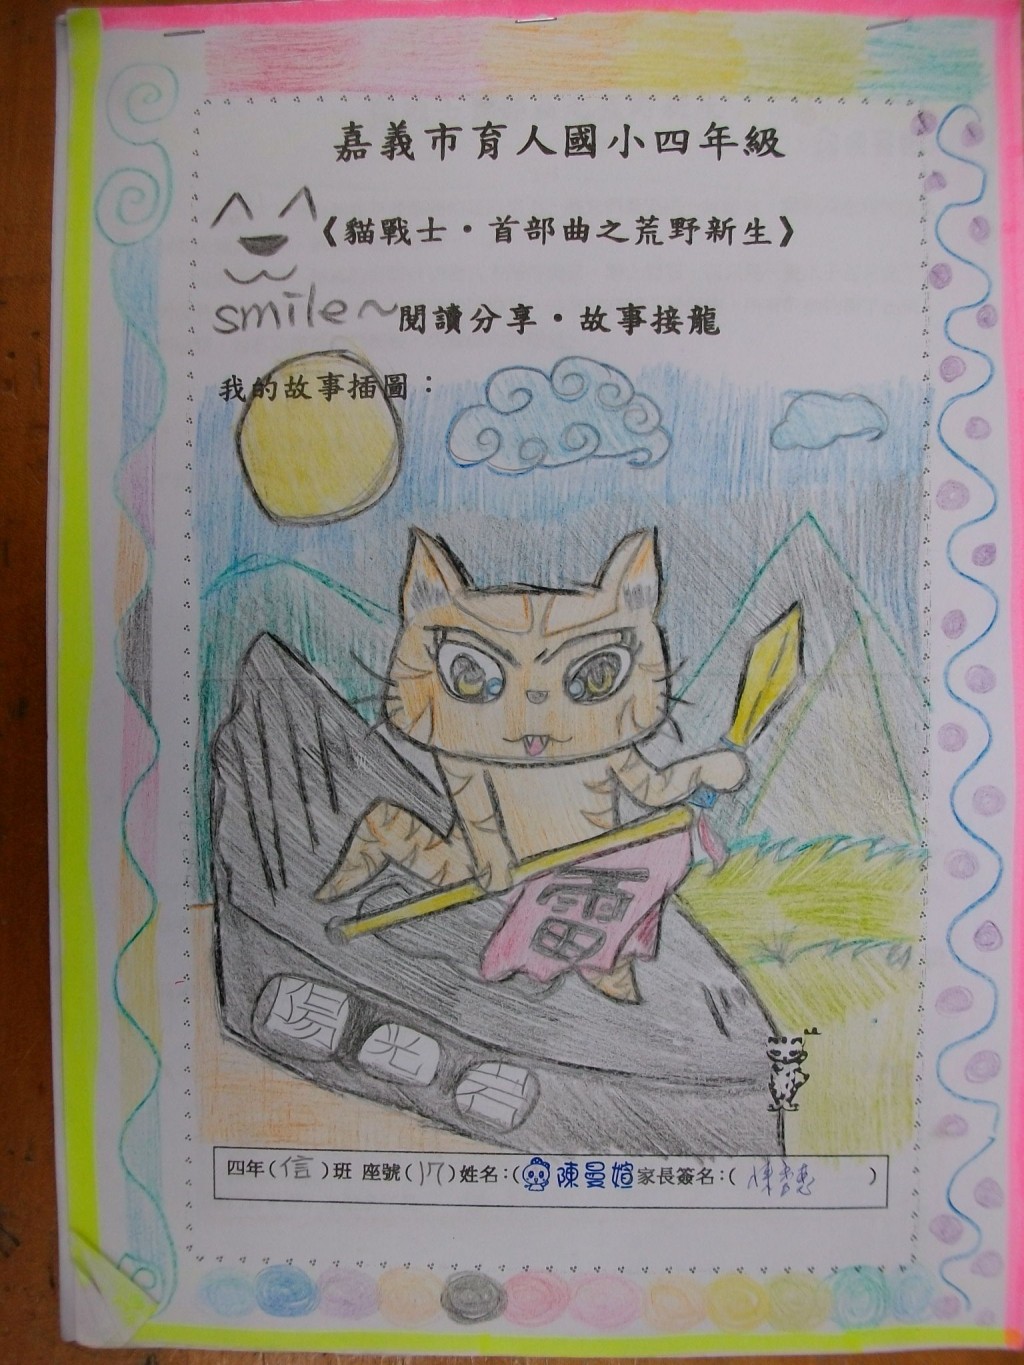 嘉義市育人國小四年級
《貓戰士·首部曲之荒野新生》
smile~閱讀分享·故事接龍
我的故事插圖：
雷
陽光岩
四年(信)班 座號(17)姓名:(陳曼媗家長簽名:( )